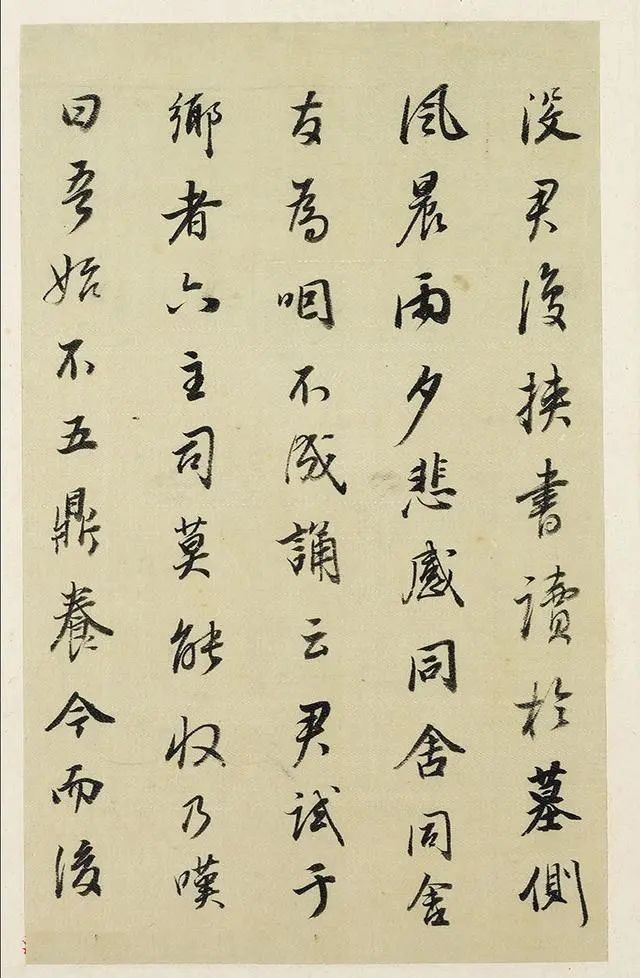 没君復挾書讀於墓側
風晨雨夕悲感同舍同舍
友為咽不成誦云君試于
鄉者六主司莫能收乃嘆
曰吾始不五鼎養今而後